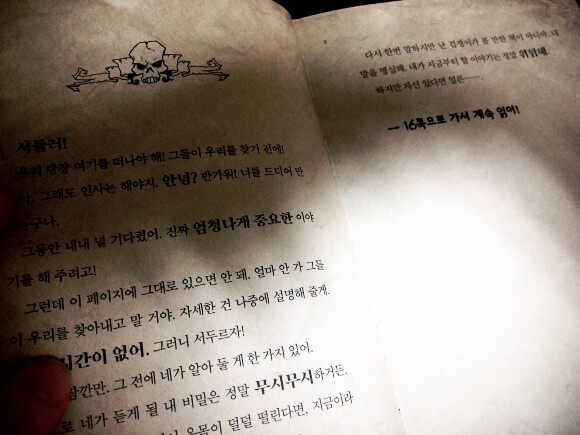 서둘러!
우리 당장 여기를 떠나야 해! 그들이 우리를 찾기 전에!
아, 그래도 인사는 해야지. 안녕? 반가워! 너를 드디어 만
났구나.
그동안 내내 널 기다렸어. 진짜 엄청나게 중요한 이야
기를 해 주려고!
그런데 이 페이지에 그대로 있으면 안 돼. 얼마 안 가 그들
이 우리를 찾아내고 말 거야. 자세한 건 나중에 설명해 줄게.
시간이 없어. 그러니 서두르자!
잠깐만, 그 전에 네가 알아 둘 게 한 가지 있어.
로 네가 듣게 될 내 비밀은 정말 무시무시하거든.
온몸이 덜덜 떨린다면, 지금이라
다시 한번 말하지만 난 겁쟁이가 볼 만한 책이 아니야. 내
말을 명심해. 내가 지금부터 할 이야기는 정말 위험해.
하지만 자신 있다면 얼른…….
→ 16쪽으로 가서 계속 읽어!